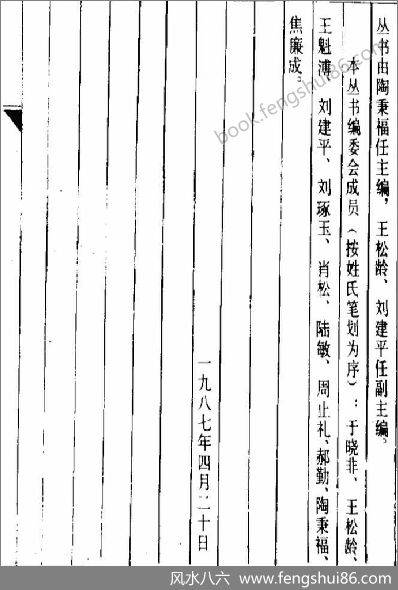 丛书由陶秉福任主编，王松龄、刘建平任副主编。
本丛书编委会成员（按姓氏笔划为序）：于晓非、王松龄、
王魁溥、刘建平、刘琢玉、肖松、陆敏、周止礼、郝勤、陶秉福、
焦廉成。
一九八七年四月二十日
book.fengshui86.com
风水八六 www.fengshui86.com